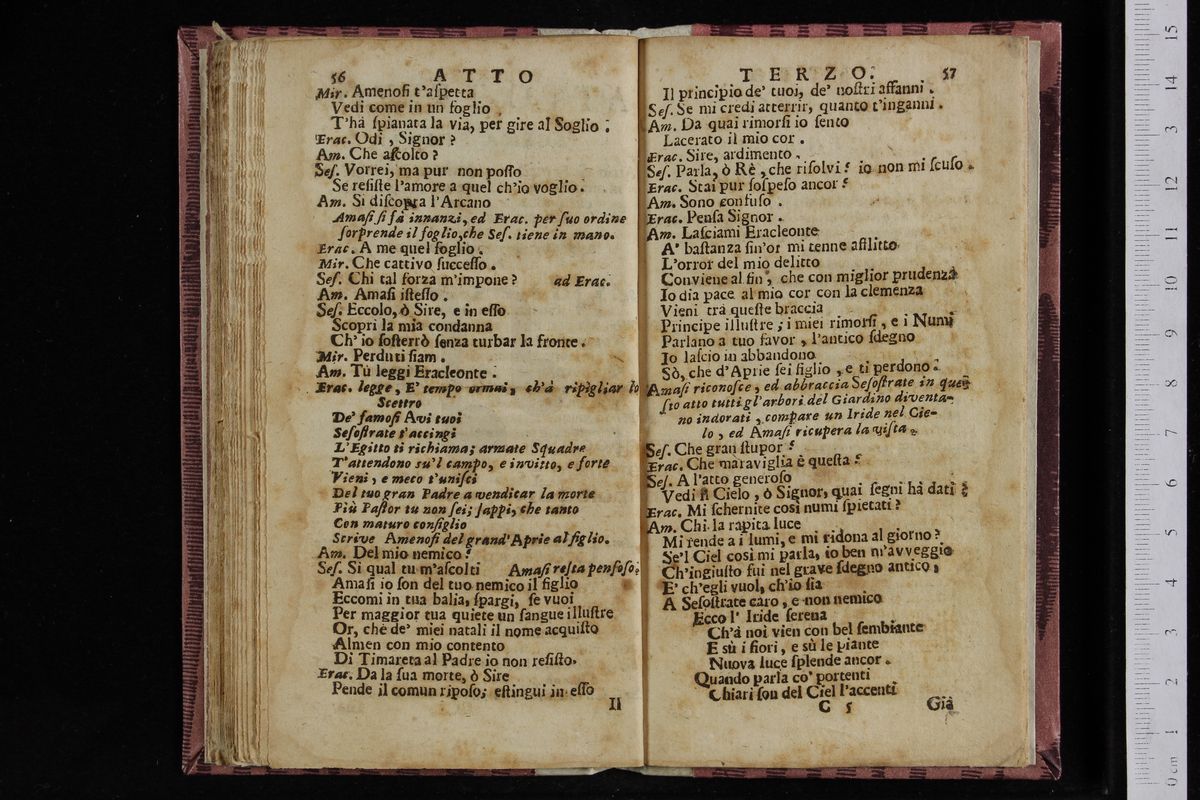 56 ATTO
Mir. Amenoſi t'aſpetta
Vedi come in un foglio.
T'hà ſpianata la via, per gire al Soglio.
Erac. Odi, Signor?
Am. Che aſcolto?
Seſ. Vorrei, ma pur non poſſo
Se reſiſte l'amore a quel ch'io voglio.
Am. Si diſcopra l'Arcano
Amaſi ſi fà innanzi, ed Erac. per ſuo ordine
ſorprende il foglio, che Seſ. tiene in mano.
Erac. A me quel foglio.
Mir. Che cattivo ſucceſſo.
Seſ. Chi tal forza m'impone? ad Erac.
Am. Amaſi iſteſſo.
Seſ. Eccolo, ò Sire, e in eſſo
Scopri la mia condanna
Ch'io ſoſterrò ſenza turbar la fronte.
Mir. Perduti ſiam.
Am. Tù leggi Eracleonte.
Erac. legge, E' tempo ormai, ch'à ripigliar lo
Scettro
De' famoſi Avi tuoi
Seſoſtrate t'accingi
L'Egitto ti richiama; armate Squadre
T'attendono su'l campo, e invitto, e forte
Vieni, e meco t'uniſci
Del tuo gran Padre a vendicar la morte
Più Paſtor tu non ſei; ſappi, che tanto
Con maturo conſiglio
Scrive Amenoſi del grand'Aprie al figlio.
Am. Del mio nemico?
Seſ. Si qual tu m'aſcolti Amaſi reſta penſoſo.
Amaſi io ſon del tuo nemico il figlio
Eccomi in tua balia, ſpargi, ſe vuoi
Per maggior tua quiete un ſangue illuſtre
Or, chè de' miei natali il nome acquiſto
Almen con mio contento
Di Timareta al Padre io non reſiſto.
Erac. Da la ſua morte, ò Sire
Pende il comun ripoſo; eſtingui in eſſo
Il
TERZO. 57
Il principio de' tuoi, de' noſtri affanni.
Seſ. Se mi credi atterrir, quanto t'inganni.
Am. Da quai rimorſi io ſento
Lacerato il mio cor.
Erac. Sire, ardimento.
Seſ. Parla, ò Rè, che riſolvi? io non mi ſcuſo.
Erac. Stai pur ſoſpeſo ancor?
Am. Sono confuſo.
Erac. Penſa Signor.
Am. Laſciami Eracleonte
A' baſtanza ſin'or mi tenne afflitto
L'orror del mio delitto
Conviene al fin, che con miglior prudenza
Io dia pace al mio cor con la clemenza
Vieni trà queſte braccia
Principe illuſtre; i miei rimorſi, e i Numi
Parlano a tuo favor, l'antico ſdegno
Io laſcio in abbandono
Sò, che d'Aprie ſei figlio, e ti perdono.
Amaſi riconoſce, ed abbraccia Seſoſtrate in que-
ſto atto tutti gl'arbori del Giardino diventa-
no indorati, compare un Iride nel Cie-
lo, ed Amaſi ricupera la viſta.
Seſ. Che gran ſtupor?
Erac. Che maraviglia è queſta?
Seſ. A l'atto generoſo
Vedi il Cielo, ò Signor, quai ſegni hà dati?
Erac. Mi ſchernite così numi ſpietati?
Am. Chi la rapita luce
Mi rende a i lumi, e mi ridona al giorno?
Se'l Ciel così mi parla, io ben m'avveggio
Ch'ingiuſto fui nel grave ſdegno antico,
E' ch'egli vuol, ch'io ſia
A Seſoſtrate caro, e non nemico
Ecco l' Iride ſerena
Ch'à noi vien con bel ſembiante
E sù i fiori, e sù le piante
Nuova luce ſplende ancor.
Quando parla co' portenti
Chiari ſon del Ciel l'accenti
C 5 Già